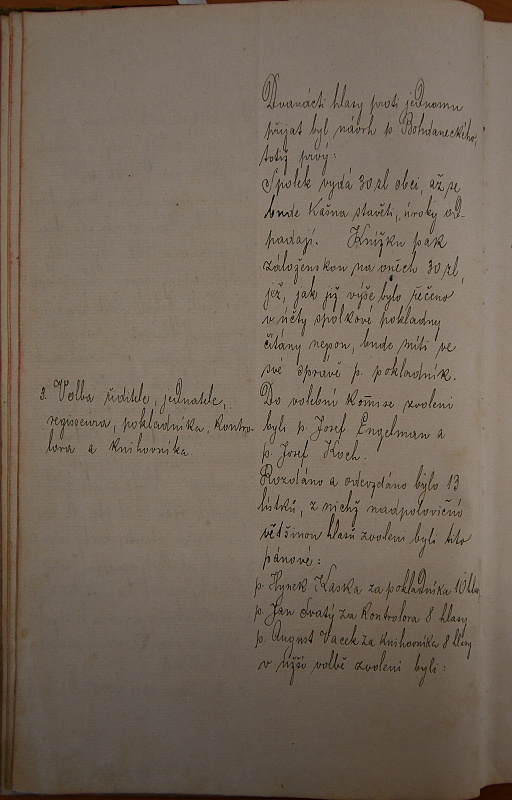 Dvanácti hlasy proti jednomu
přijat byl návrh p. Bohdaneckého,
totiž prvý:
Spolek vydá 30 zl obci, až se
bude kašna stavěti, úroky od-
padají. Knížku pak
záloženskou na oněch 30 zl,
jež, jak již výše bylo řečeno
v účty spolkové pokladny
čítány nejsou, bude míti ve
své správě p. pokladník.
3. Volba řiditele, jednatele,
regisseura, pokladníka, kontro-
lora a knihovníka.
Do volební komise zvoleni
byli p. Josef Engelman a
p. Josef Koch.
Rozdáno a odevzdáno bylo 13
lístků, z nichž nadpoloviční
většinou hlasů zvoleni byli tito
pánové:
p. Hynek Kaska za pokladníka 10 hlasy
p. Jan Svatý za kontrolora 8 hlasy
p. August Vacek za knihovníka 8 hlasy
v užší volbě zvoleni byli: